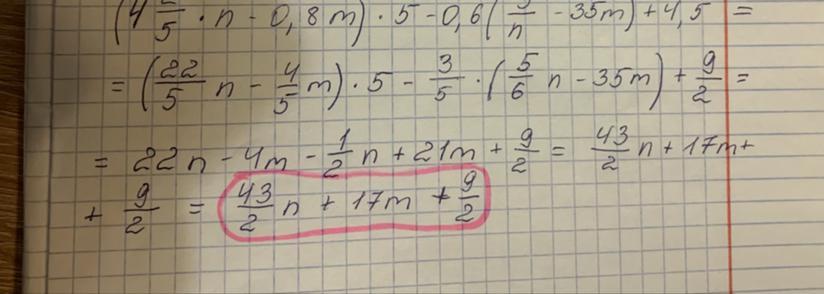 (4 2/5 · n - 0,8 m) · 5 - 0,6 (5/n - 35m) + 4,5 =
= (22/5 n - 4/5 m) · 5 - 3/5 · (5/6 n - 35m) + 9/2 =
= 22n - 4m - 1/2 n + 21m + 9/2 = 43/2 n + 17m +
+ 9/2 = 43/2 n + 17m + 9/2